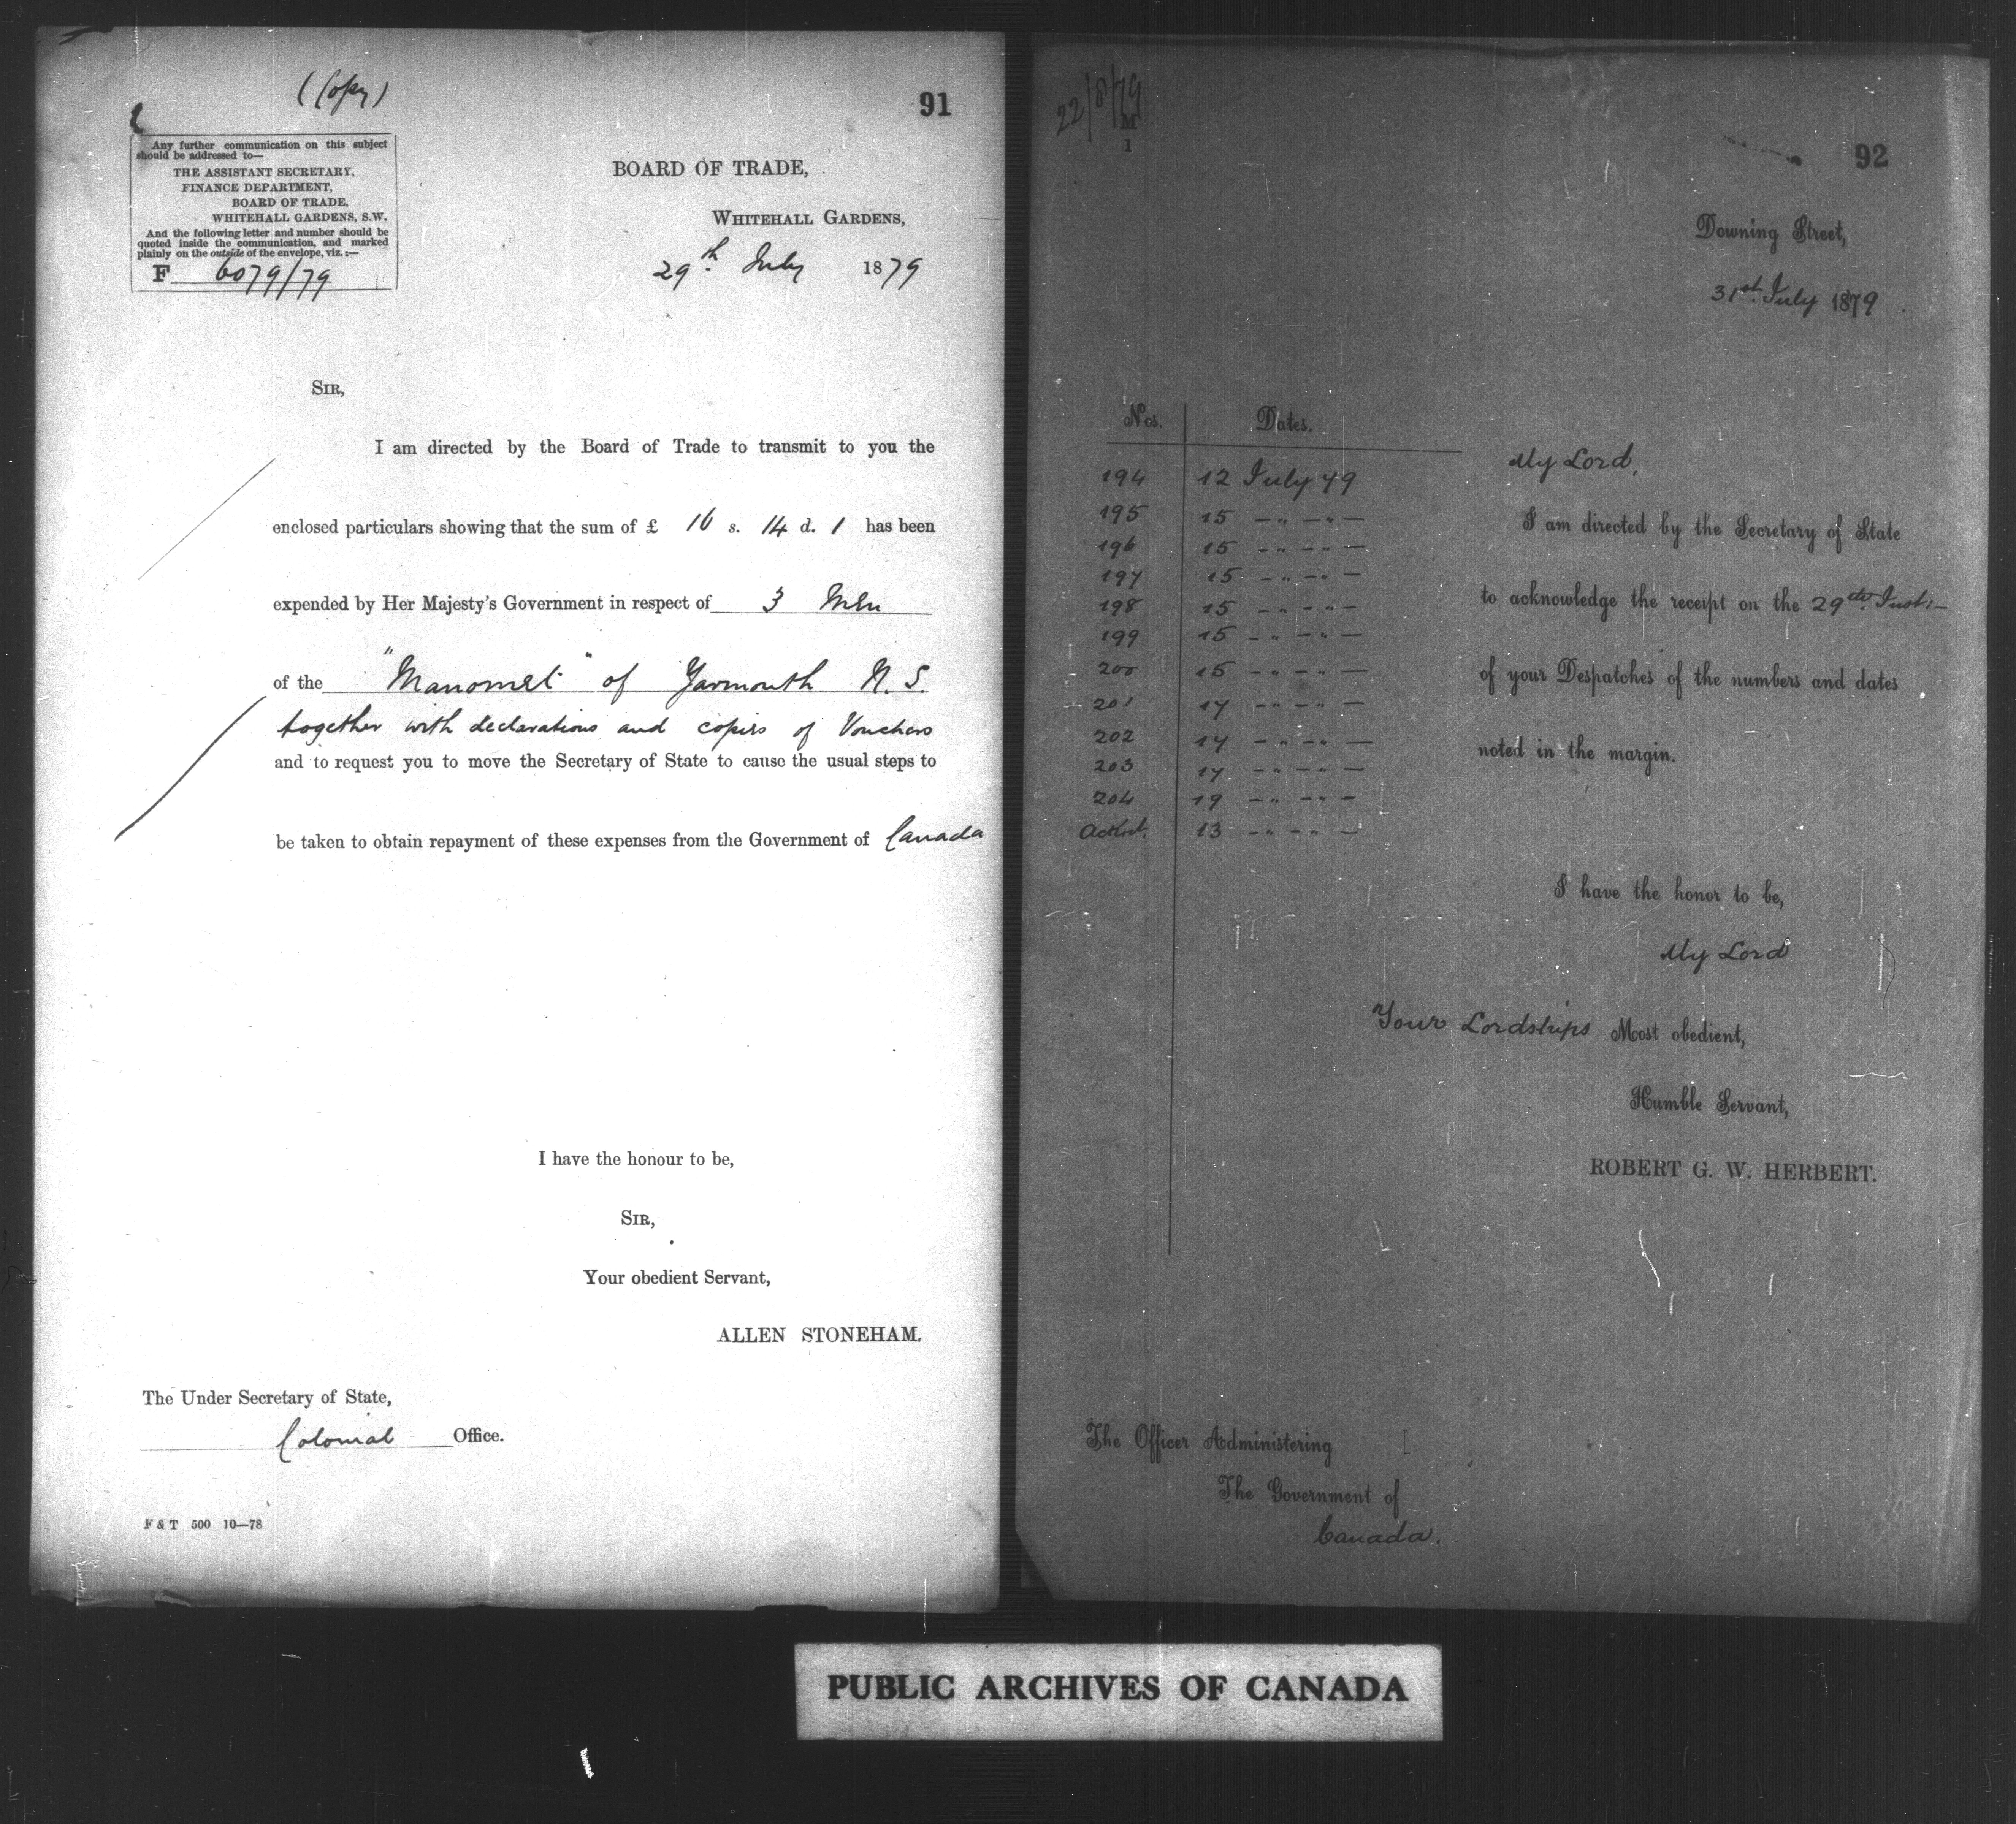 (Copy)
91
Any further communication on this subject
should be addressed to—
THE ASSISTANT SECRETARY,
FINANCE DEPARTMENT,
BOARD OF TRADE,
WHITEHALL GARDENS, S.W.
And the following letter and number should be
quoted inside the communication, and marked
plainly on the outside of the envelope, viz.:—
F 6079/79
BOARD OF TRADE,
WHITEHALL GARDENS,
29th July 1879
SIR,
I am directed by the Board of Trade to transmit to you the
enclosed particulars showing that the sum of £ 16 s. 14 d. 1 has been
expended by Her Majesty's Government in respect of 3 Men
of the "Manomet" of Yarmouth N.S.
together with declarations and copies of Vouchers
and to request you to move the Secretary of State to cause the usual steps to
be taken to obtain repayment of these expenses from the Government of Canada
I have the honour to be,
SIR,
Your obedient Servant,
ALLEN STONEHAM.
The Under Secretary of State,
Colonial Office.
F & T 500 10—78
22/8/79
M
1
92
Downing Street,
31st July 1879
Nos. Dates.
194 12 July 79
195 15 — " — " —
196 15 — " — " —
197 15 — " — " —
198 15 — " — " —
199 15 — " — " —
200 15 — " — " —
201 17 — " — " —
202 17 — " — " —
203 17 — " — " —
204 19 — " — " —
13 — " — " —
My Lord,
I am directed by the Secretary of State
to acknowledge the receipt on the 29th Inst:—
of your Despatches of the numbers and dates
noted in the margin.
I have the honor to be,
My Lord
Your Lordships Most obedient,
Humble Servant,
ROBERT G. W. HERBERT.
The Officer Administering
The Government of
Canada.
PUBLIC ARCHIVES OF CANADA